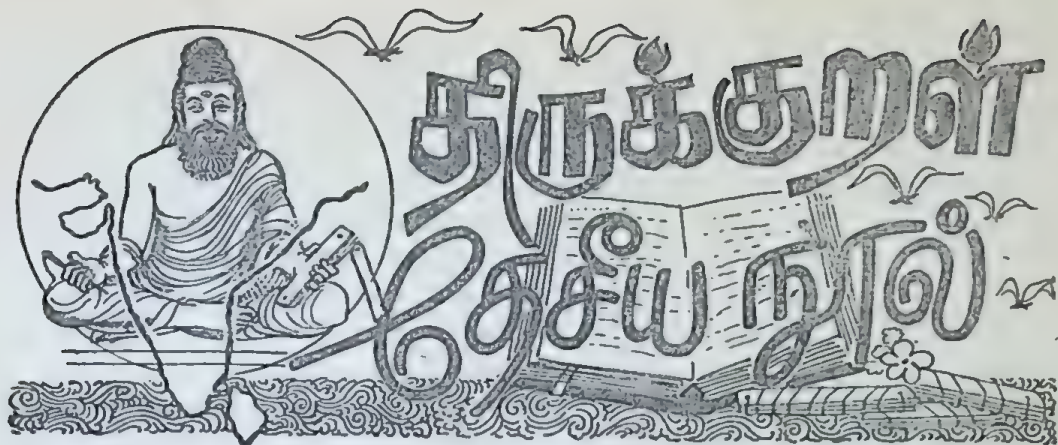 திருக்குறள்
தேசிய நூல்